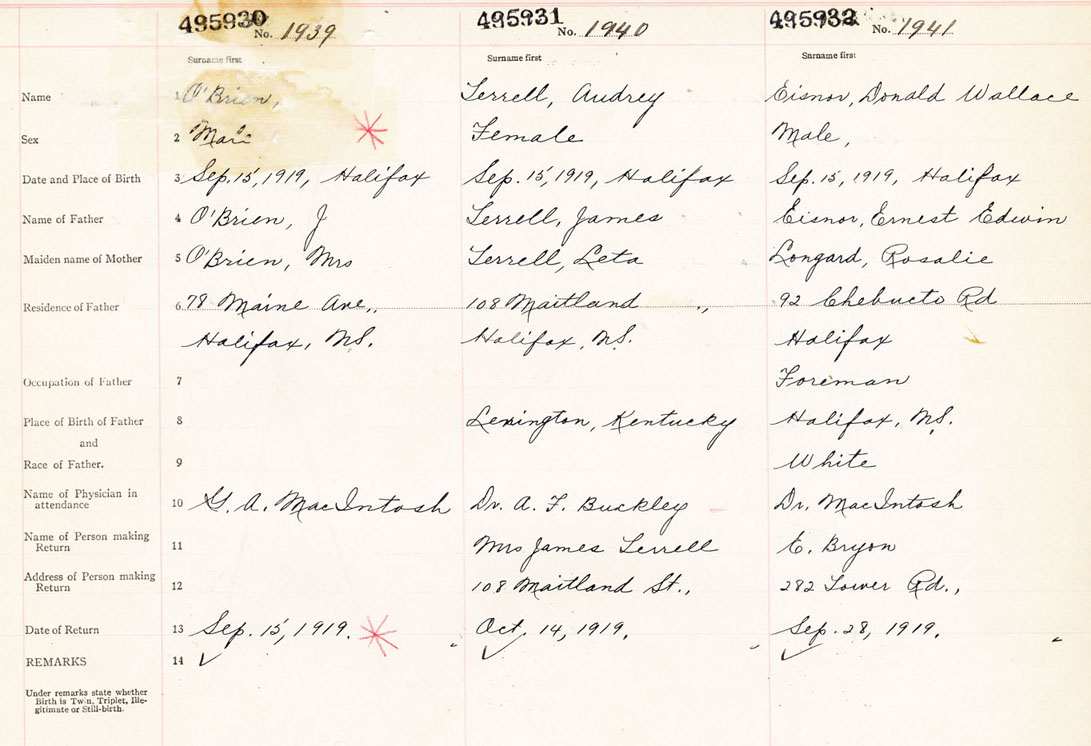 495930 No. 1939 495931 No. 1940 495932 No. 1941
Surname first Surname first Surname first
Name 1 O'Brien, Terrell, Audrey Eisnor, Donald Wallace
Sex 2 Female Male,
Date and Place of Birth 3 Sep. 15, 1919, Halifax Sep. 15, 1919, Halifax Sep. 15, 1919, Halifax
Name of Father 4 O'Brien, J Terrell, James Eisnor, Ernest Edwin
Maiden name of Mother 5 O'Brien, Mrs Terrell, Leta Longard, Rosalie
Residence of Father 6 78 Maine Ave., 108 Maitland ., 92 Chebucto Rd
Halifax, N.S. Halifax, N.S. Halifax
Occupation of Father 7 Foreman
Place of Birth of Father 8 Lexington, Kentucky Halifax, N.S.
and
Race of Father. 9 White
Name of Physician in
attendance 10 G. A. MacIntosh Dr. A. F. Buckley Dr. MacIntosh
Name of Person making
Return 11 Mrs James Terrell E. Bryon
Address of Person making
Return 12 108 Maitland St., 282 Tower Rd.,
Date of Return 13 Sep. 15, 1919. Oct. 14, 1919. Sep. 28, 1919.
REMARKS 14 ✓ ✓ ✓
Under remarks state whether
Birth is Twin, Triplet, Ille-
gitimate or Still-birth.